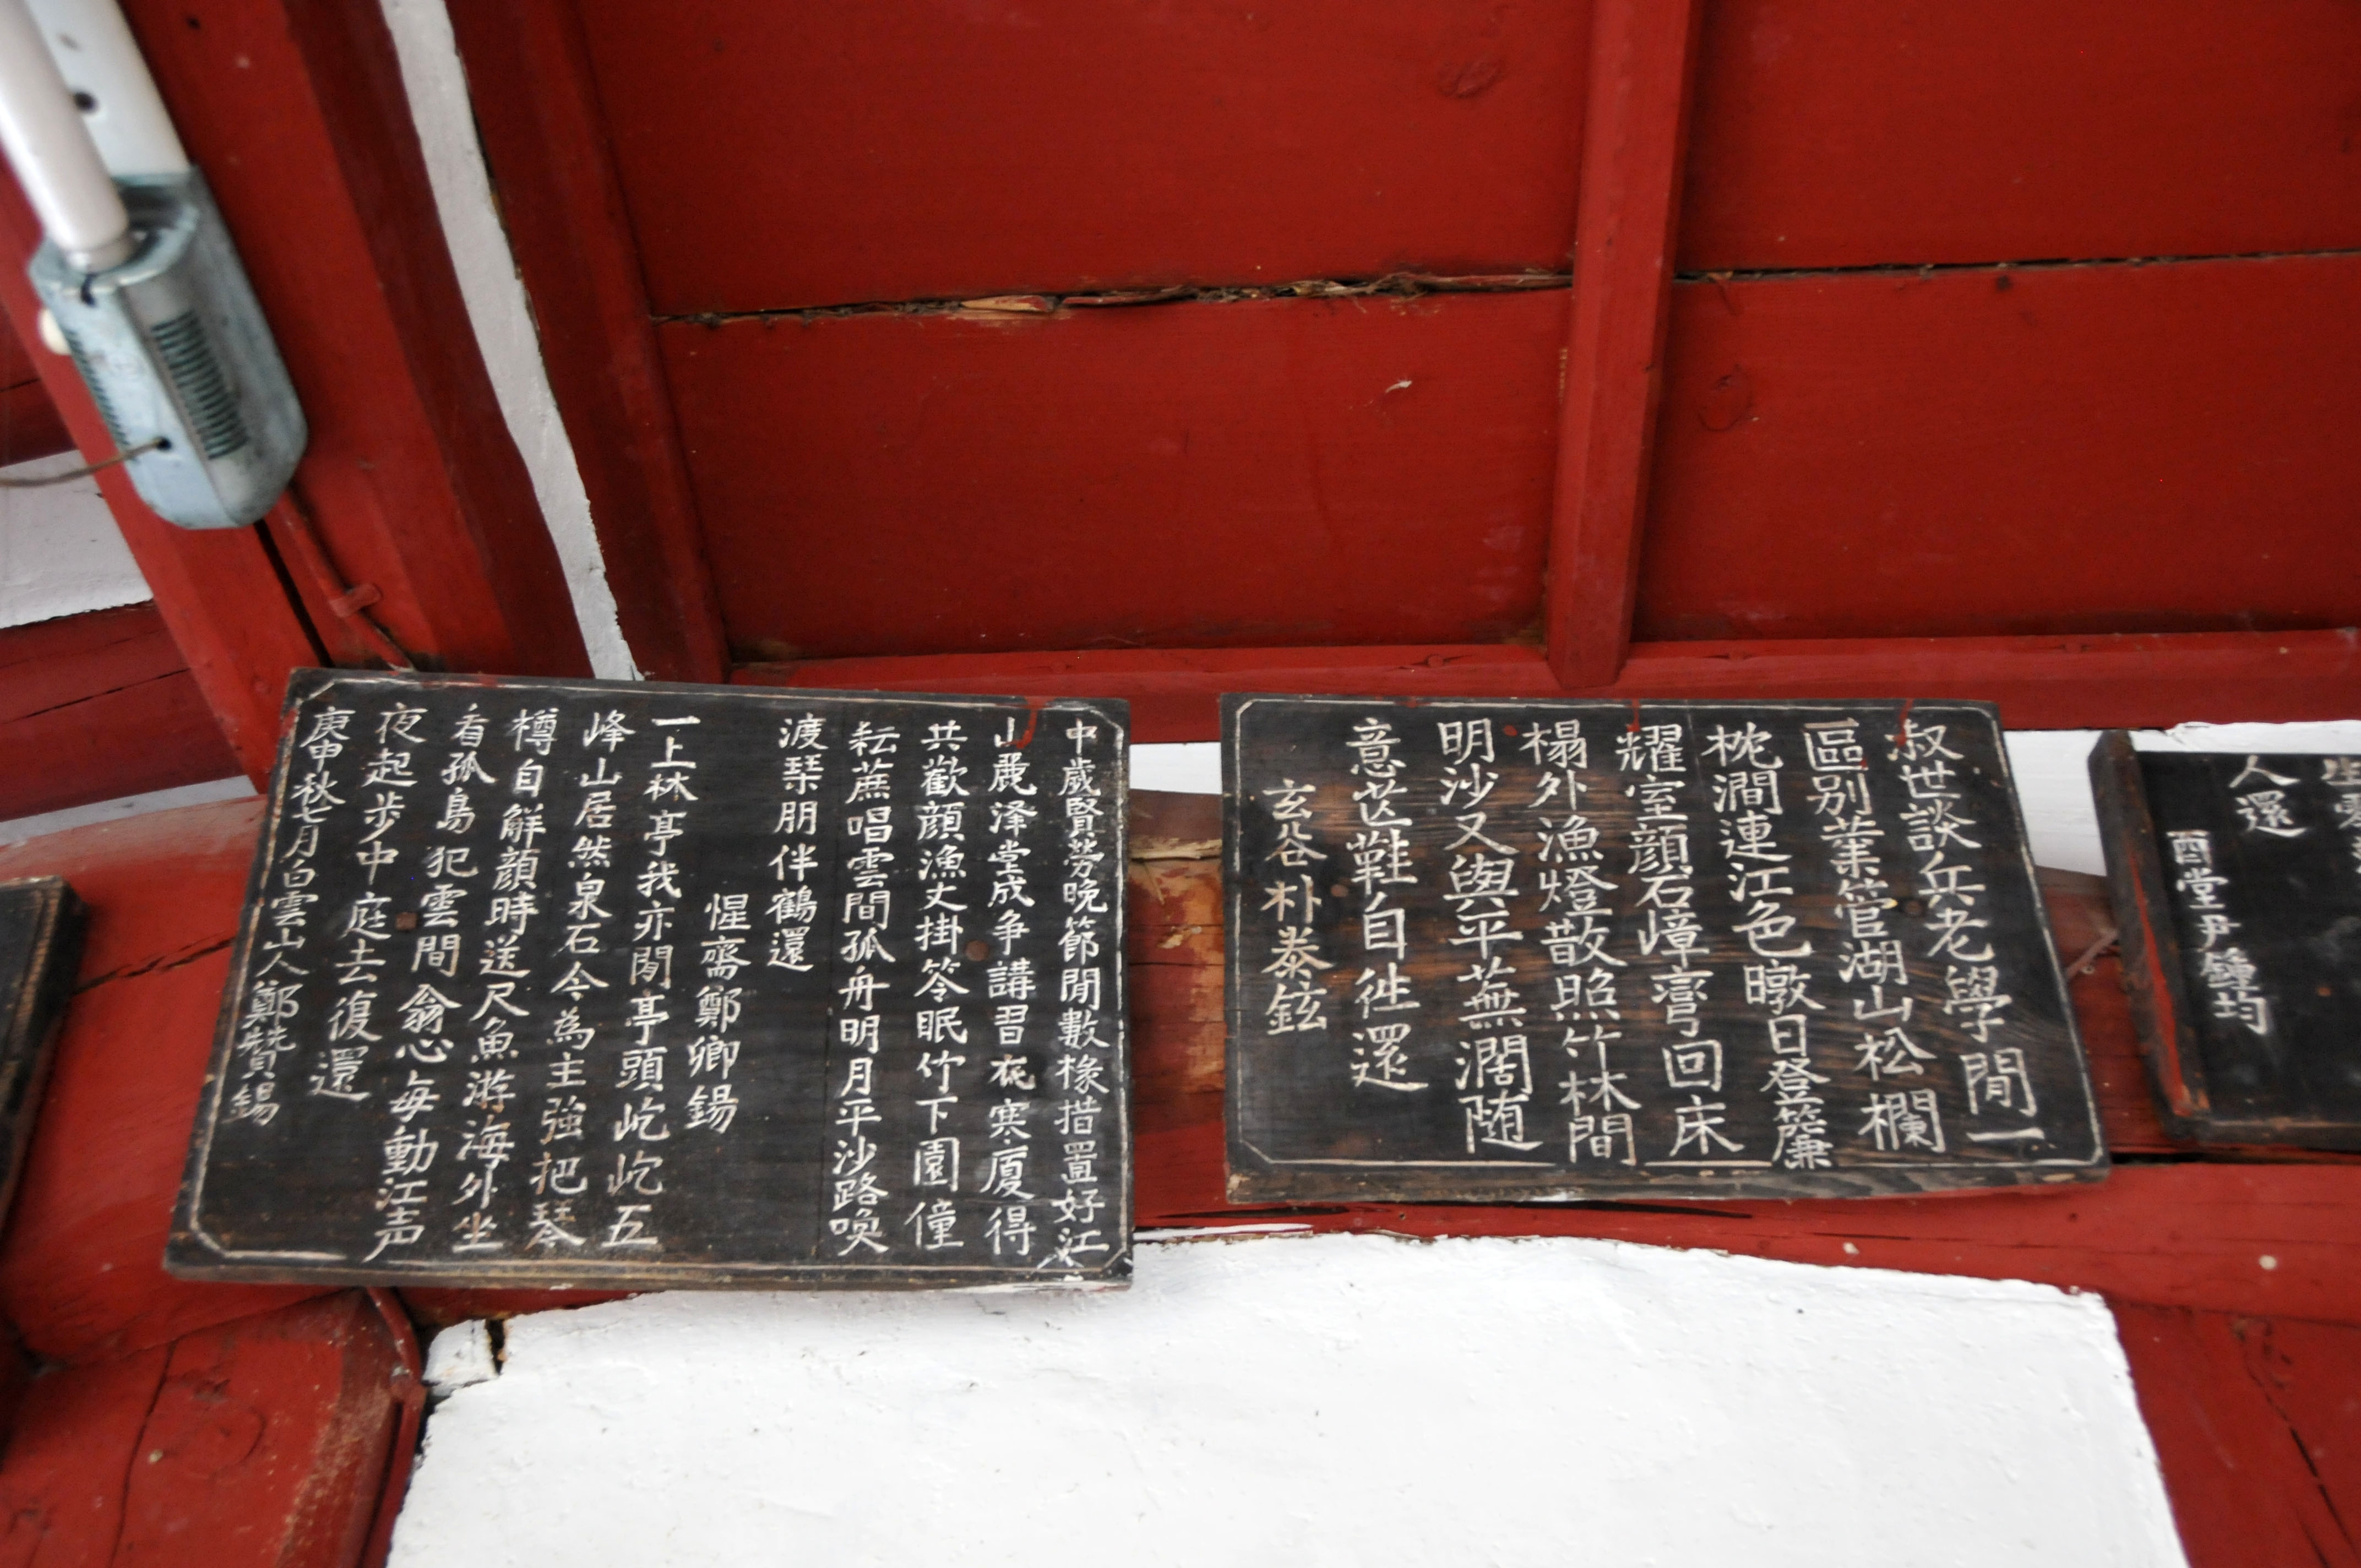 生
人還
酉堂尹鍾均
叔世談兵老學閒一
區別業管湖山松欄
枕澗連江色暾日登簾
耀室顔石嶂彎回床
榻外漁燈散照竹林間
明沙又與平蕪濶随
意芒鞋自徃還
玄谷朴泰鉉
中歲賢劳晩節閒數椽措置好江
山麗泽堂成争講習 寒厦得
共歡顔漁丈掛笭眠竹下園僮
耘蔗唱雲間孤舟明月平沙路喚
渡琹朋伴鶴還
惺齋鄭卿錫
一上林亭我亦閒亭頭屹屹五
峰山居然泉石今為主強把琴
樽自觧顔時送尺魚游海外坐
看孤島犯雲間翁心每動江声
夜起步中庭去復還
庚申秋七月白雲山人鄭賛錫